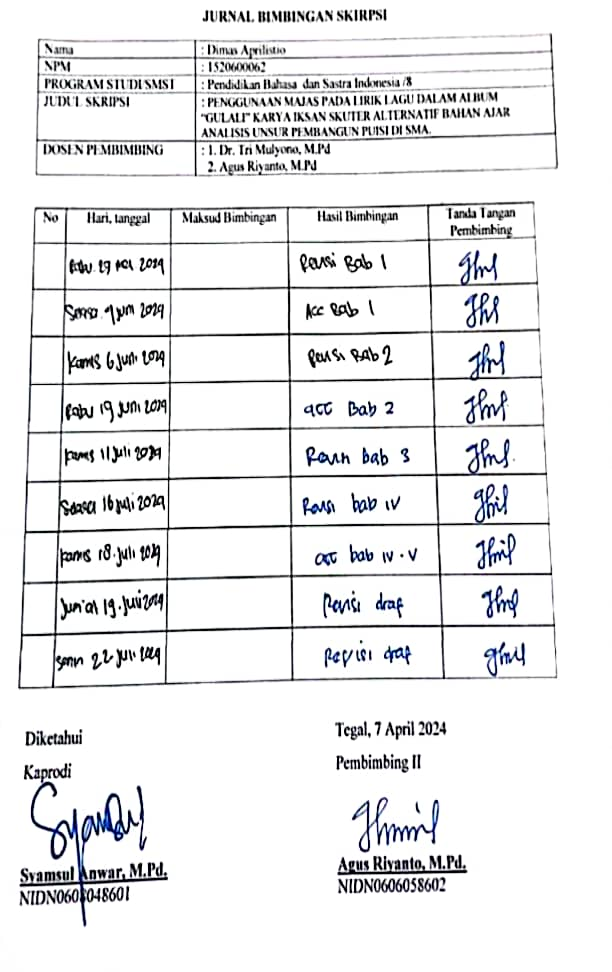 JURNAL BIMBINGAN SKIRPSI
Nama : Dimas Aprilistio
NPM : 1520600062
PROGRAM STUDI SMSI : Pendidikan Bahasa dan Sastra Indonesia /8
JUDUL SKRIPSI : PENGGUNAAN MAJAS PADA LIRIK LAGU DALAM ALBUM
"GULALI" KARYA IKSAN SKUTER ALTERNATIF BAHAN AJAR
ANALISIS UNSUR PEMBANGUN PUISI DI SMA.
DOSEN PEMBIMBING : 1. Dr. Tri Mulyono, M.Pd
2. Agus Riyanto, M.Pd
No Hari, tanggal Maksud Bimbingan Hasil Bimbingan Tanda Tangan
Pembimbing
Rabu 29 2024 Revisi Bab 1
2024 ACC Bab 1
Kamis 6 Juni 2024 Revisi Bab 2
Rabu 19 Juni 2024 acc Bab 2
Kamis 11 Juli 2024 bab 3
Selasa 16 Juli 2024 Revisi bab IV
Kamis 18 Juli 2024 acc bab IV - V
Jum'at 19 Juli 2024 Revisi draf
Senin 22 Juli 2024 Revisi draf
Diketahui
Kaprodi
Syamsul Anwar, M.Pd.
NIDN0608048601
Tegal, 7 April 2024
Pembimbing II
Agus Riyanto, M.Pd.
NIDN0606058602